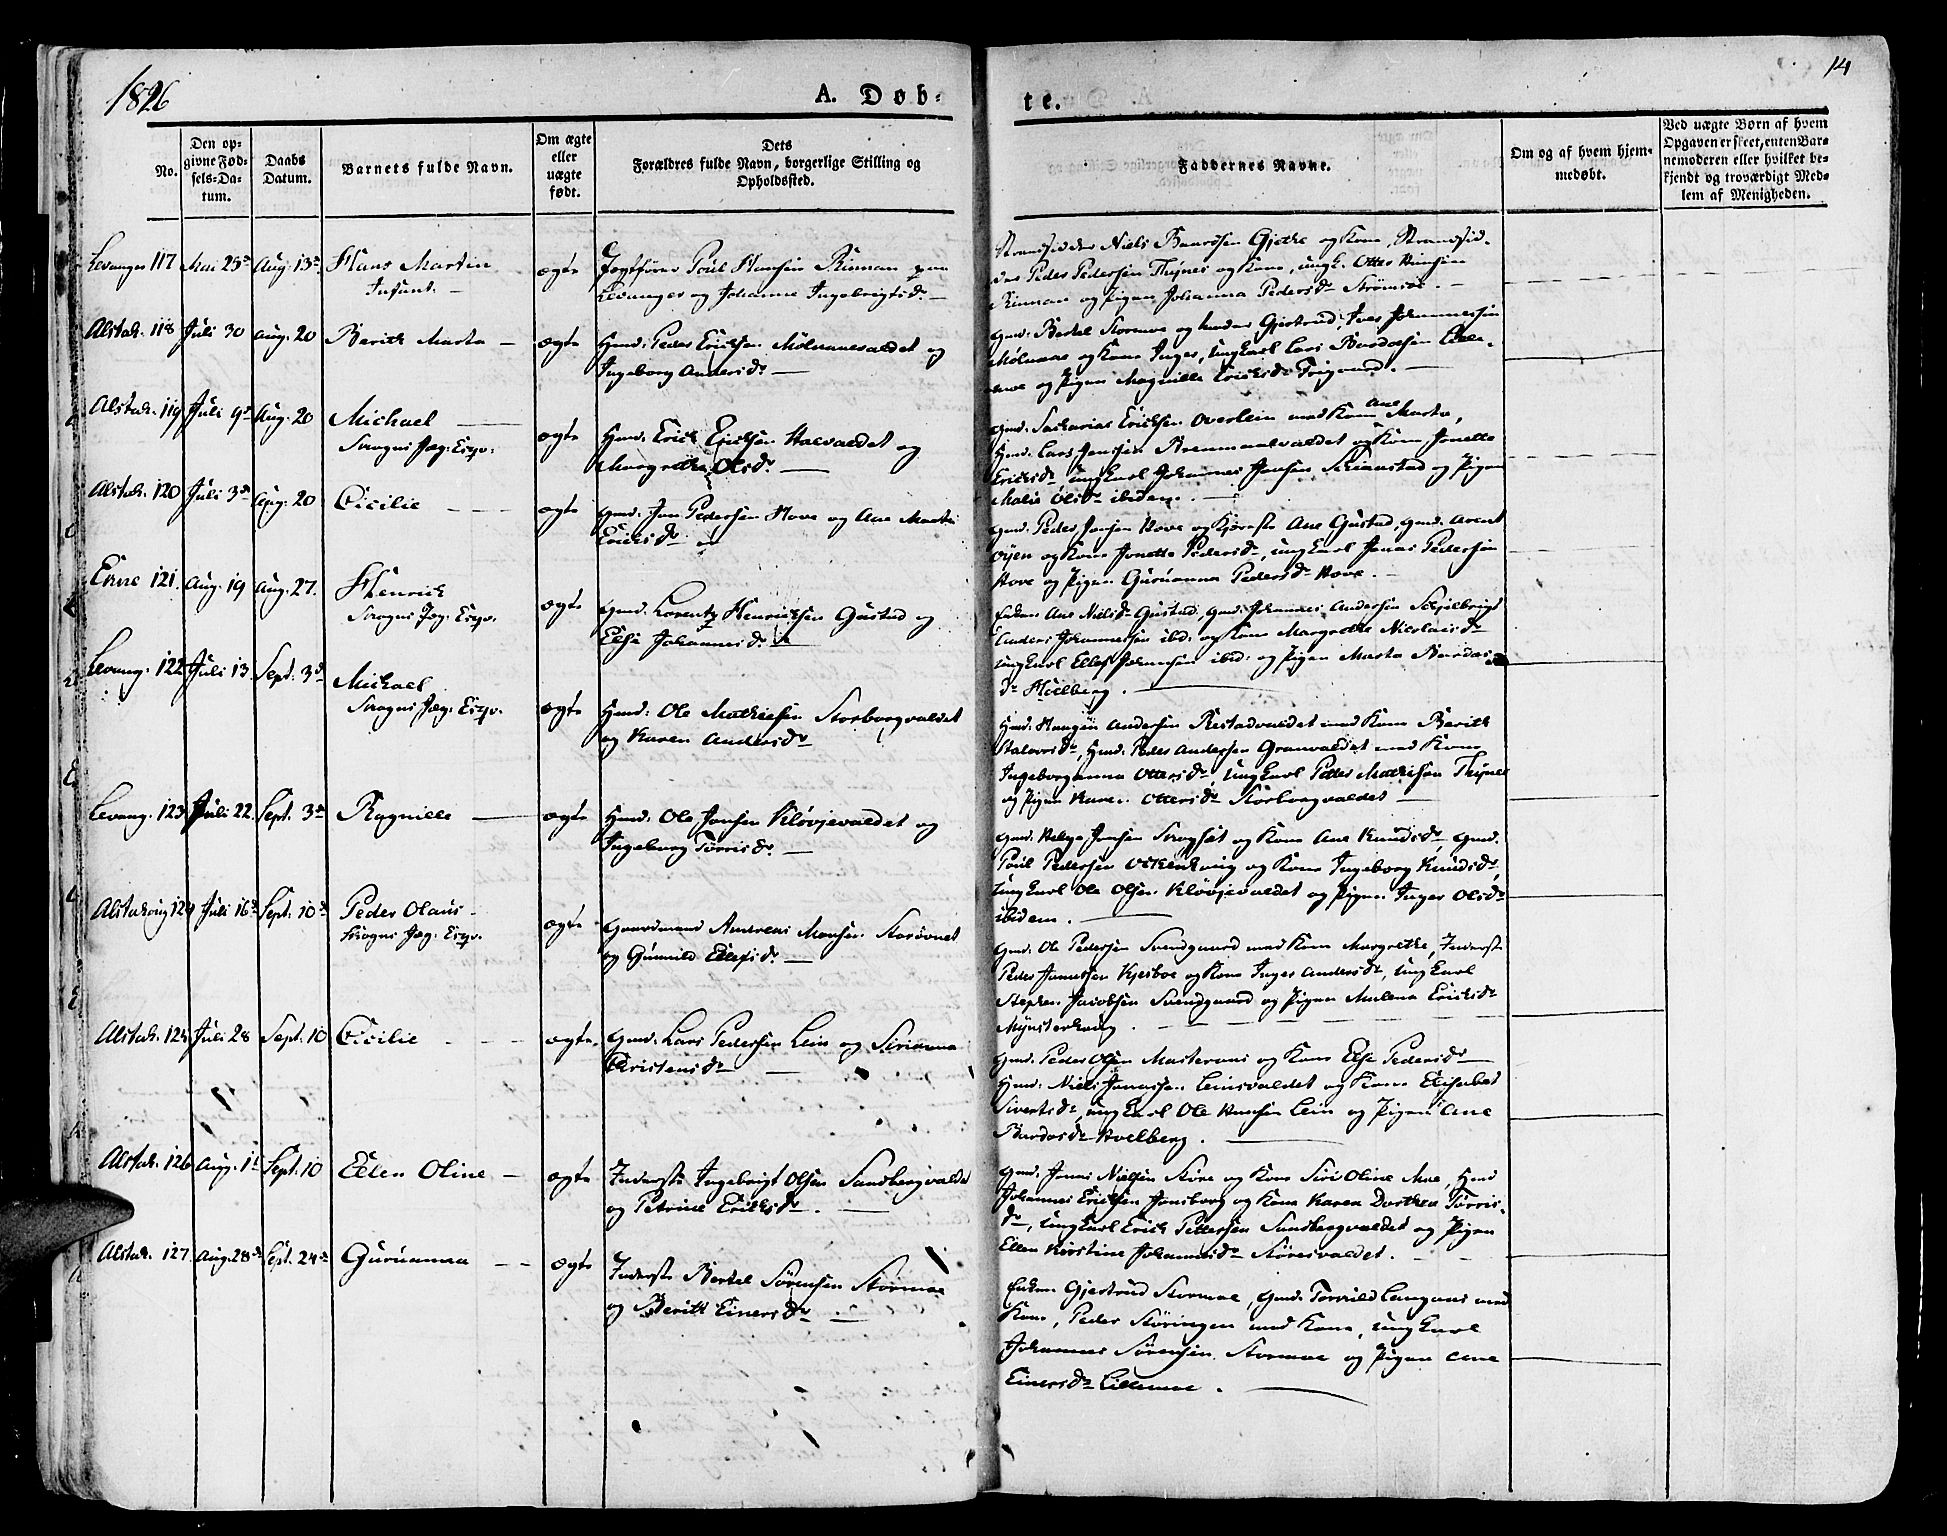 1826
A. Døb-
te.
14
No.
Den op-
givne Fød-
sels-Da-
tum.
Daabs
Datum.
Barnets fulde Navn.
Om ægte
eller
uægte
født.
Dets
Forældres fulde Navn, borgerlige Stilling og
Opholdssted.
Faddernes Navne.
Om og af hvem hjem-
medøbt.
Ved uægte Børn af hvem
Opgaven er skeet, enten Bar-
nemoderen eller hvilket be-
kjendt og troværdigt Med-
lem af Menigheden.
Levanger 117 Mai 25d Aug. 13d Hans Martin
Infant.
ægte
Poul Hansen Rinnan paa
Levanger og Johanna Ingebrigtsdr
Strandsidder Niels Baardsen Gjethe og Kone, Strandsid-
der Peder Pedersen Thynes og Kone, Ungk. Otter Hansen
Rinnan og Pigen Johanna Pedersdr Strømsøe.
Alstah. 118 Juli 30 Aug. 20 Berith Marta
ægte
Hmd: Peder Ericksen Molnaesvaldet og
Ingeborg Andersdr
Gmd: Bertel Stormoe og Gjertrud, Iver Johannessen
og Kone Inger, Ungkarl Lars Bardosen
og Pigen Magnille Ericksdr
Alstah. 119 Juli 9d Aug. 20 Michael
Srogns Jag: Esqv.
ægte
Hmd: Erick Ericksen Halvaldet og
Margrethe Olsdr
Gmd. Zacharias Ericksen Overlein med Kone Ane Marta,
Hmd: Lars Jonsen og Kone Jonetta
Ericksdr Ungkarl Johannes Jonsen og Pigen
Malie Olsdr ibidem.
Alstah. 120 Juli 3d Aug. 20 Cicilie
ægte
Gmd: Jon Pedersen Hove og Ane Marta
Ericksdr
Gmd: Peder Jonsen Hove og Ane Gustad, Gmd. Arent
Øyen og Kone Jonetta Pedersdr, Ungkarl Jonas Pedersen
Hove og Pigen Guruanna Pedersdr Hove.
Ekne 121. Aug. 19 Aug. 27. Henrick
Srogns Jag: Esqv.
ægte
Gmd: Lorentz Henricksen Gustad og
Else Johannesdr
Enken Ane Nielsdr Gustad, Gmd. Johannes Andersen
Anders Johannessen ibd: og Kone Margrethe Nicolaisdr
Ungkarl Ellef Johansen ibid: og Pigen Marta
dr Hoelberg.
Levang. 122 Juli 13 Sept: 3d Michael
Srogns Jæg: Esqv.
ægte
Hmd: Ole Mathiesen Storborgvaldet
og Karen Andersdr
Hmd: Haagen Andersen Restadvaldet med Kone Berith
Halvorsdr, Hmd: Peder Andersen Granvaldet med Kone
Ingeborganna Ottersdr, Ungkarl Peder Mathisen Thynes
og Pigen Karen Ottersdr Storborgvaldet
Levang. 123 Juli 22. Sept. 3d Ragnille
ægte
Hmd: Ole Jonsen Kløvjevaldet og
Ingeborg Torrisdr
Gmd: Helge Jonsen og Kone Ane Knudsdr, Gmd.
Poul Pedersen og Kone Ingeborg Knudsdr
Ungkarl Ole Olsen Kløvjevaldet og Pigen Inger Olsdr
ibidem.
Alstahoug 124 Juli 16d Sept: 10d Peder Olaus
Srogns Jæg: Esqv.
ægte
Gaardmand Andreas Monsen
og Gunnild Ellefsdr
Gmd: Ole Pedersen Svendgaard med Kone Margrethe, Inderst
Peder Kjesboe og Kone Inger Andersdr, Ungkarl
Stephen Jacobsen Svendgaard og Pigen Malena Ericksdr
Mynsterhoug.
Alstah. 125 Juli 28 Sept. 10 Cicilie
ægte
Gmd: Lars Pedersen Lein og Sirianna
Christensdr
Gmd. Peder Olsen og Kone Else Pedersdr
Hmd: Niels Jonassen Leinsvaldet og Kone Elisabet
Sivertsdr, Ungkarl Ole Hansen Lein og Pigen Ane
Bardosdr Hoelberg.
Alstah. 126 Aug. 1t Sept. 10 Ellen Oline
ægte
Inderst Ingebrigt Olsen Sundbergvaldet
og Petrine Ericksdr
Gmd. Jonas Nielsen og Kone Siri Oline Moe, Hmd
Johannes Ericksen Jonsborg og Kone Karen Dorthea Torris-
dr, Ungkarl Erick Pettersen Sundbergvaldet og Pigen
Ellen Kirstine Johannesdr
Alstah. 127 Aug. 28d Sept. 24d Guruanna
ægte
Inderst Bertel Sørensen Stormoe
og Beritt Einersdr
Enken Gjertrud Stormoe, Gmd. med
Kone, Peder Störingen med Kone, Ungkarl
Johannes Sørensen Stormoe og Pigen Ane
Einersdr Lillemoe.